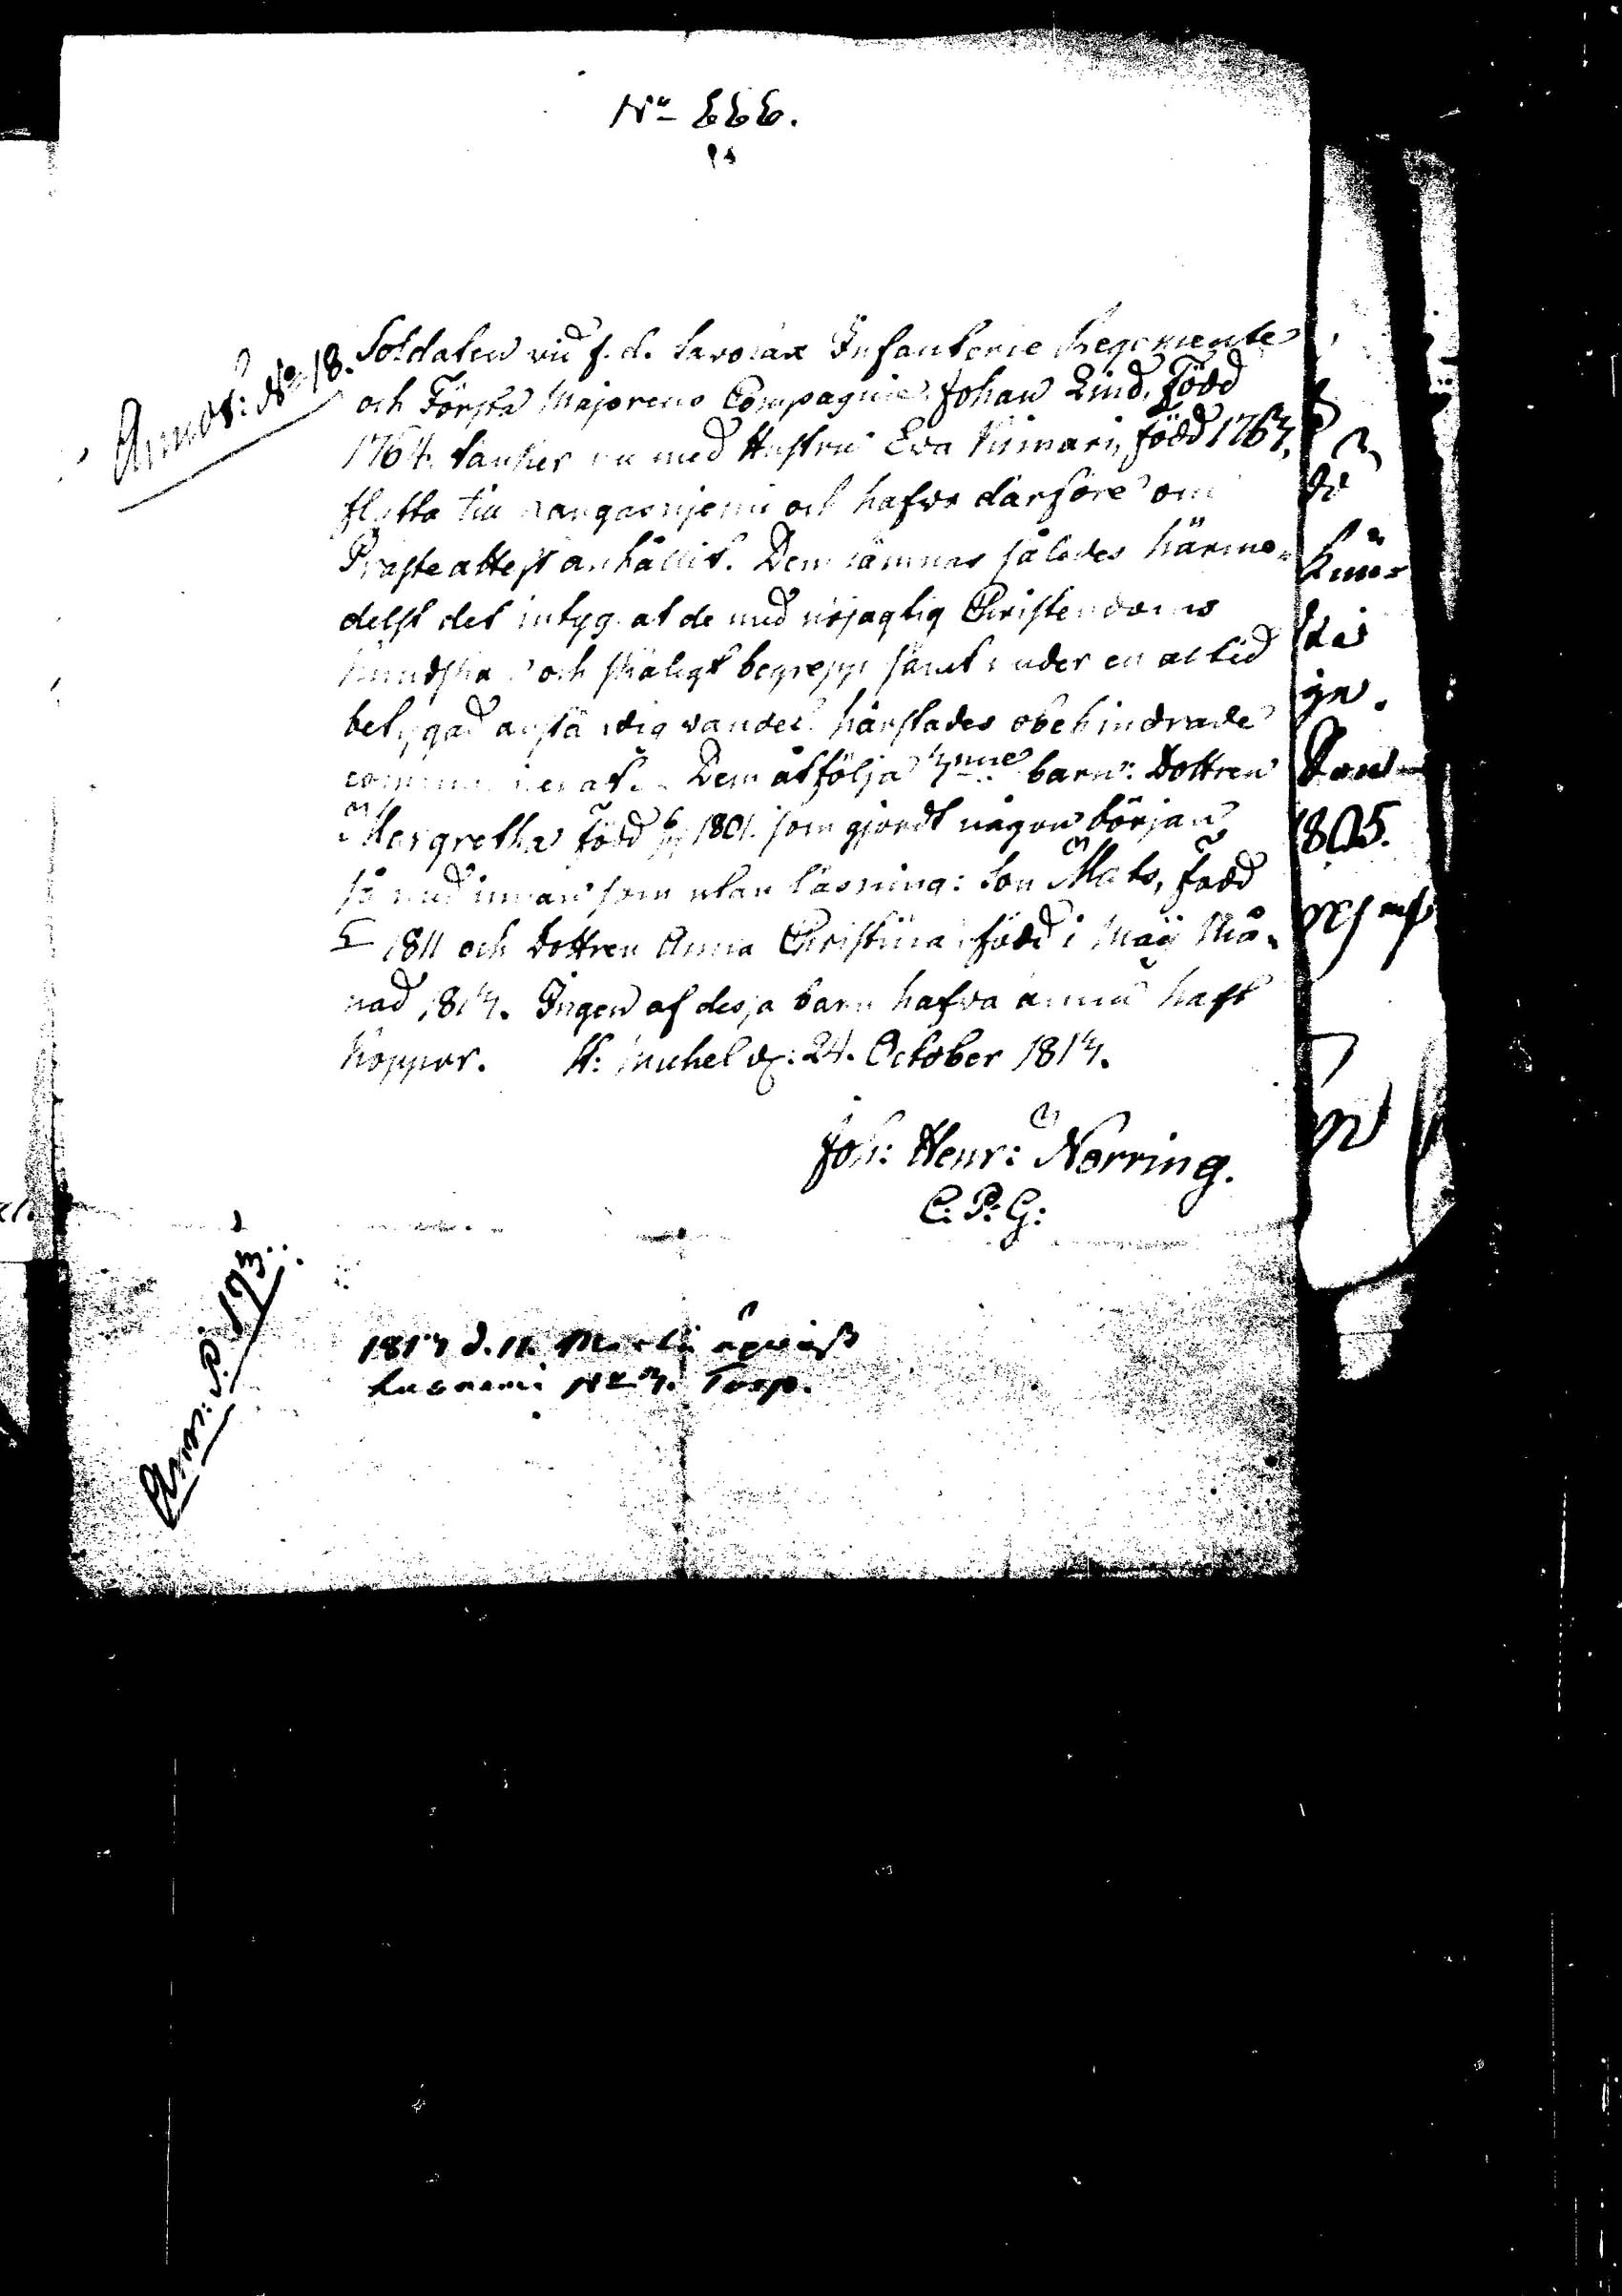 No 666.
Annot: No 18.
Soldaten vid f. d. Savolax Infanterie Regemente
och Första Majorens Compagnie Johan Lind, Född
1764. tänker nu med Hustru Eva född 1763,
flytta till Kangasnjemi och hafva därföre om
Präste attest anhållit. Dem lämnas således härme-
delst det intyg. at de med nöjagtig Christendoms
Kundskap och skäligt begrepp samt under en altid
betygad anständig vandel härstädes obehindrade
communicerat. Dem åtfölja 3nne barn: Dottren
Margretha född 1801. som gjordt någon början
så med innan som utan läsning: Son Mats, född
1811 och Dottren Anna Christina född i Maÿ Må-
nad 1813. Ingen af dessa barn hafva ännu haft
Koppor. St: Michel d: 24. October 1813.
Joh: Henr: Norring.
C. P: G:
Ann: P. 193.
1817 d. 11. Martii
No 3.
Kun-
1805.